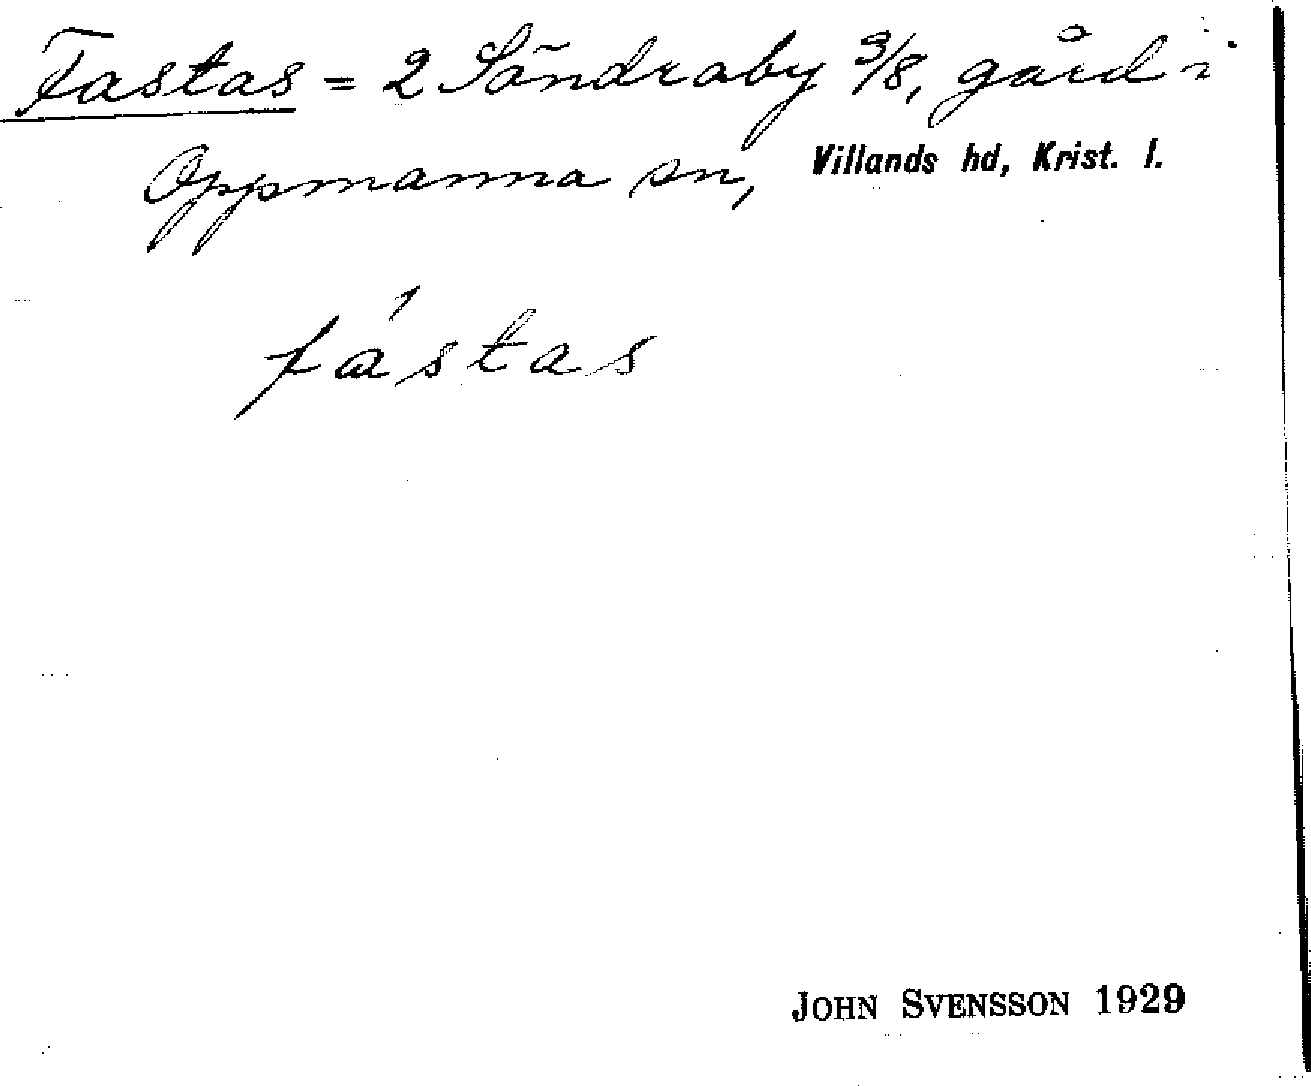 Fastas = 2 Söndraby 3/8, gård i
Oppmanna sn, Villands hd, Krist. l.
fástas
JOHN SVENSSON 1929